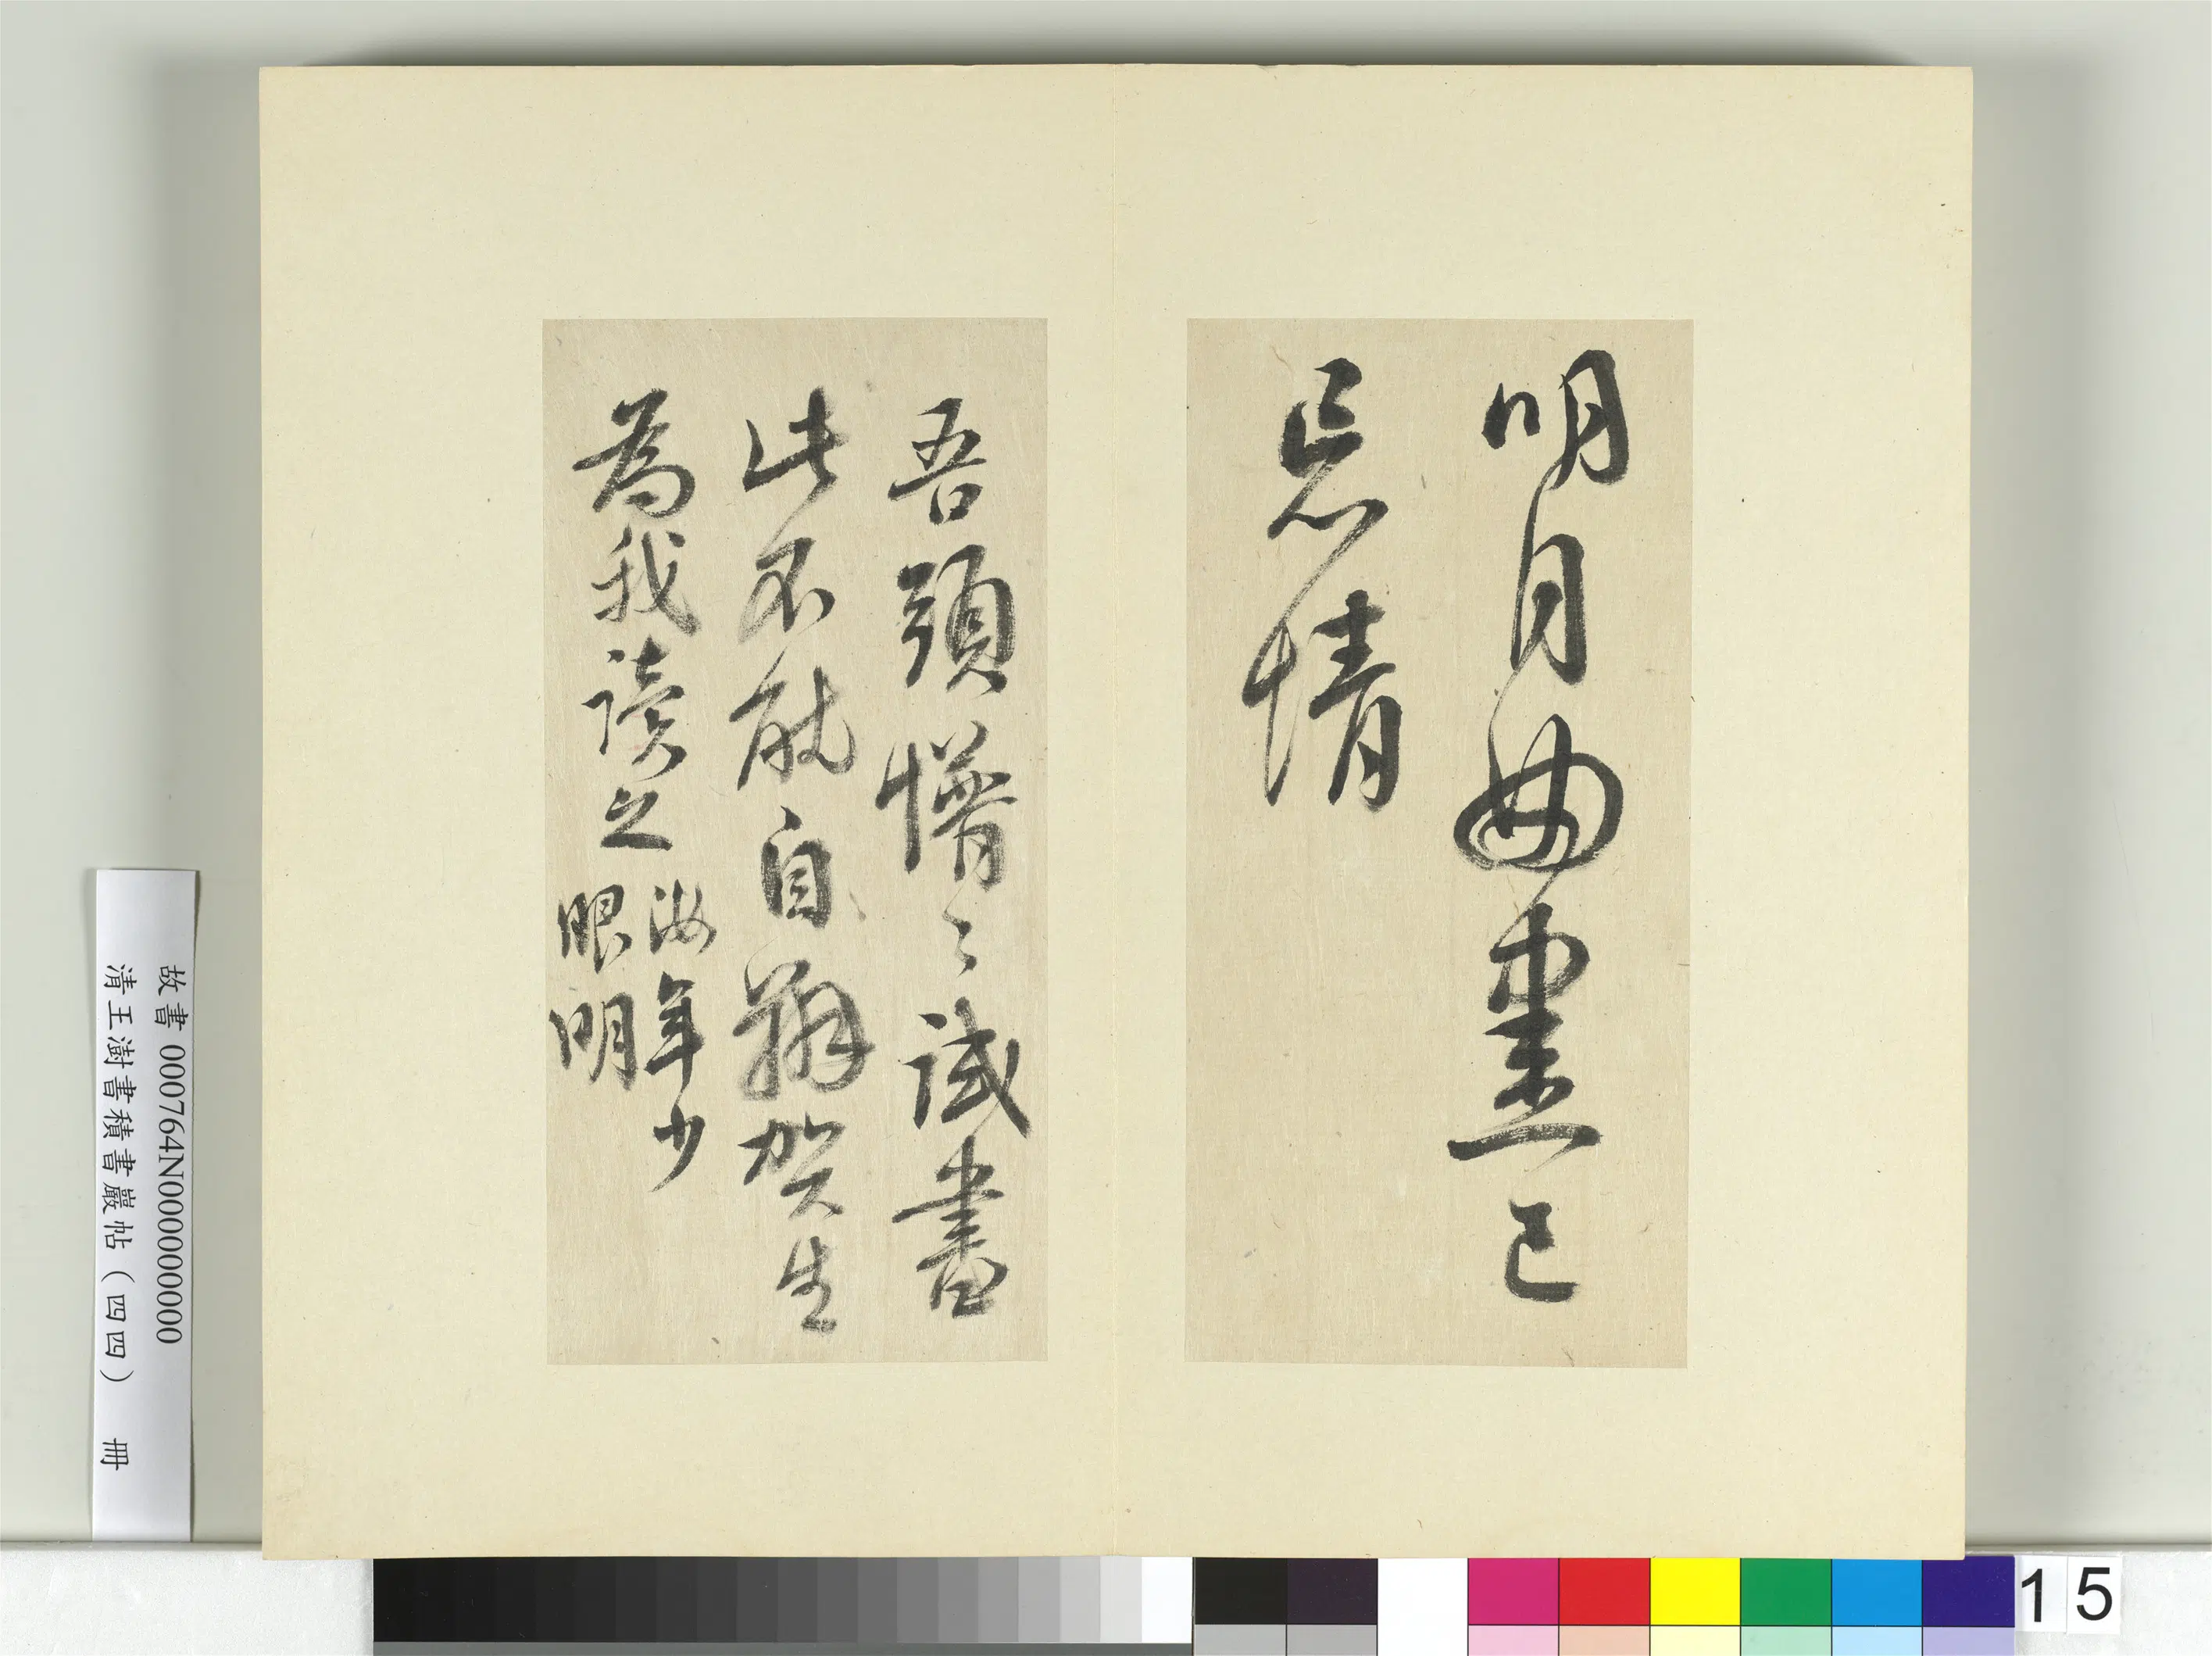 明月已
忘情
吾頭懵〻試書
此不能自辨賀生
為我讀之
汝年少
眼明
故書 000764N000000000
清王澍書積書巖帖（四四） 冊
15